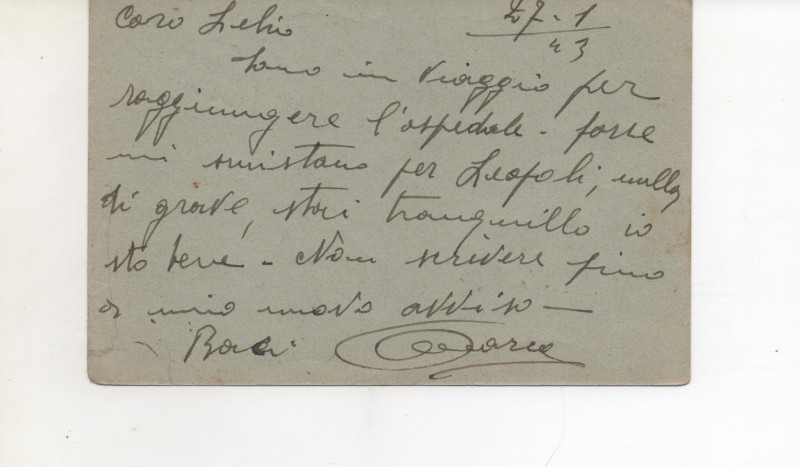 Caro Lelio 27-1
43
Sono in viaggio per
raggiungere l'ospedale - forse
mi smistano per Leopoli, nulla
di grave, stai tranquillo io
sto bene - Non scrivere fino
a mio nuovo avviso -
Baci